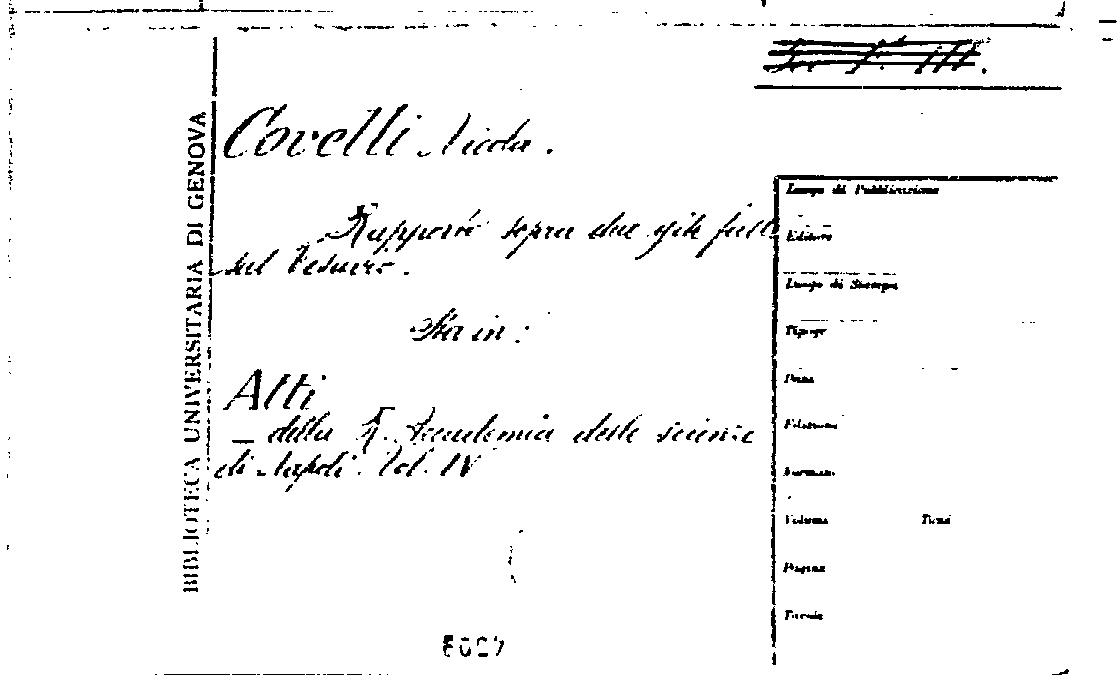 BIBLIOTECA UNIVERSITARIA DI GENOVA
Covelli Nicola.
Rapporto sopra due gite fatte
sul Vesuvio.
Sta in:
Atti
della R. Accademia delle scienze
di Napoli. Vol. IV
Luogo di Pubblicazione
Editore
Luogo di Stampa
Tipogr
Data
Edizione
Formato
Volume
Pagine
Tavole